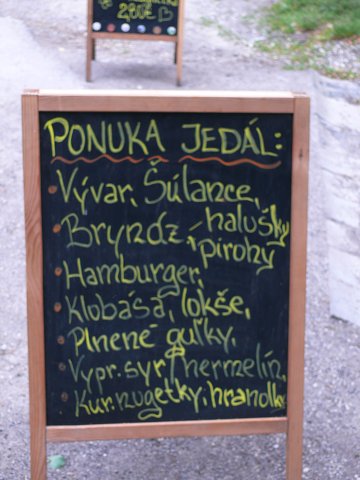 2,80€
PONUKA JEDÁL:
Vývar, Šúlance,
Bryndz. halušky
pirohy
Hamburger,
Klobása, lokše,
Plnené guľky,
Vypr. syr, hermelín,
Kur. nugetky, hranolke